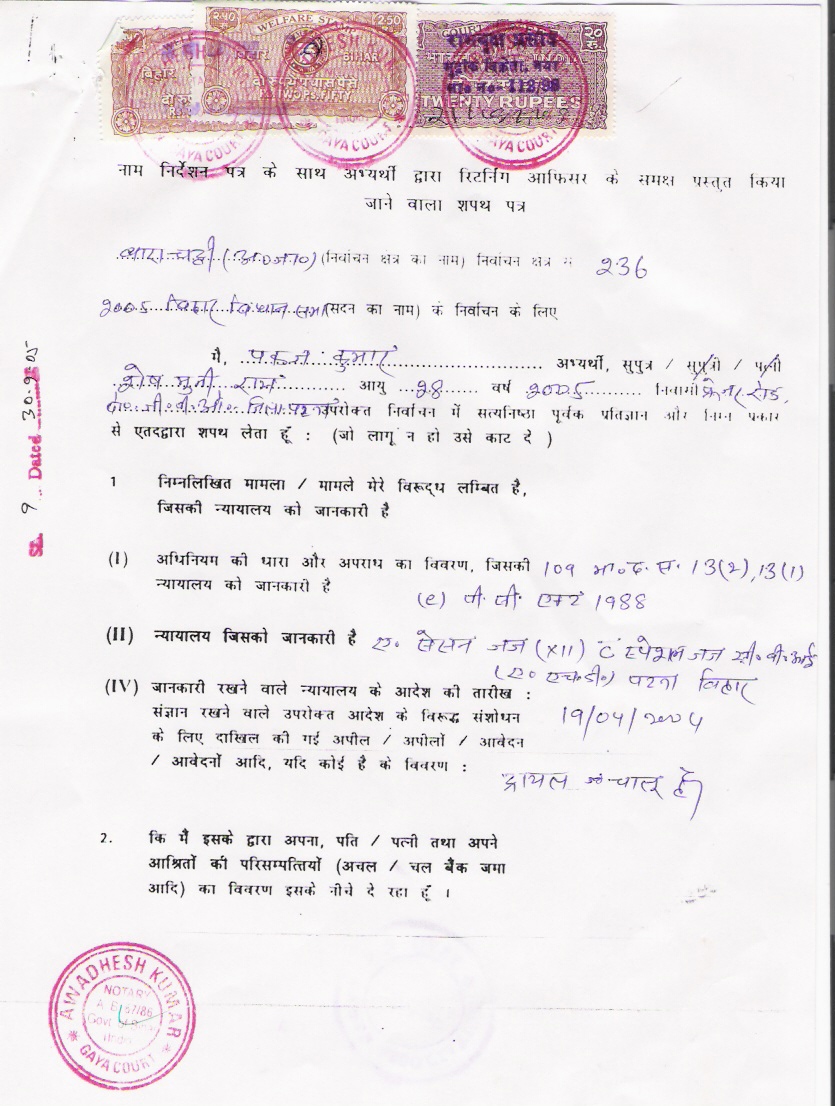 WELFARE STAMP
बिहार BIHAR
२.५० 2.50
दो रुपये पचास पैसे
RS. TWO PS. FIFTY
२० रु.
रामवृक्ष प्रसाद
मुद्रांक विक्रेता, गया
TWENTY RUPEES
GAYA COURT
नाम निर्देशन पत्र के साथ अभ्यर्थी द्वारा रिटर्निंग आफिसर के समक्ष प्रस्तुत किया
जाने वाला शपथ पत्र
बाराचट्टी (अ०जा०) (निर्वाचन क्षेत्र का नाम) निर्वाचन क्षेत्र सं 236
2005 बिहार विधान सभा (सदन का नाम) के निर्वाचन के लिए
मै, पंकज कुमार अभ्यर्थी, सुपुत्र / सुपुत्री / पत्नी
शेष मुनी राम आयु 28 वर्ष 2005 निवासी फ्रेजर रोड,
पो. जी. पी. ओ. जिला पटना उपरोक्त निर्वाचन में सत्यनिष्ठा पूर्वक प्रतिज्ञान और निम्न प्रकार
से एतदद्वारा शपथ लेता हूँ : (जो लागू न हो उसे काट दे )
SL. 9 Dated 30.9.05
1 निम्नलिखित मामला / मामले मेरे विरूद्ध लम्बित है,
जिसकी न्यायालय को जानकारी है
(I) अधिनियम की धारा और अपराध का विवरण, जिसकी 109 भा०द.स. 13(2),13(1)
न्यायालय को जानकारी है (e) पी.सी. एक्ट 1988
(II) न्यायालय जिसको जानकारी है ए. सेसन जज (XII) स्पेशल जज सी०बी०आई
(ए० एच०डी०) पटना बिहार
(IV) जानकारी रखने वाले न्यायालय के आदेश की तारीख :
संज्ञान रखने वाले उपरोक्त आदेश के विरूद्ध संशोधन 19/04/2004
के लिए दाखिल की गई अपील / अपीलों / आवेदन
/ आवेदनों आदि, यदि कोई है के विवरण :
ट्रायल चालू है
2. कि मैं इसके द्वारा अपना, पति / पत्नी तथा अपने
आश्रितों की परिसम्पत्तियों (अचल / चल बैंक जमा
आदि) का विवरण इसके नीचे दे रहा हूँ ।
AWADHESH KUMAR
NOTARY
GAYA COURT